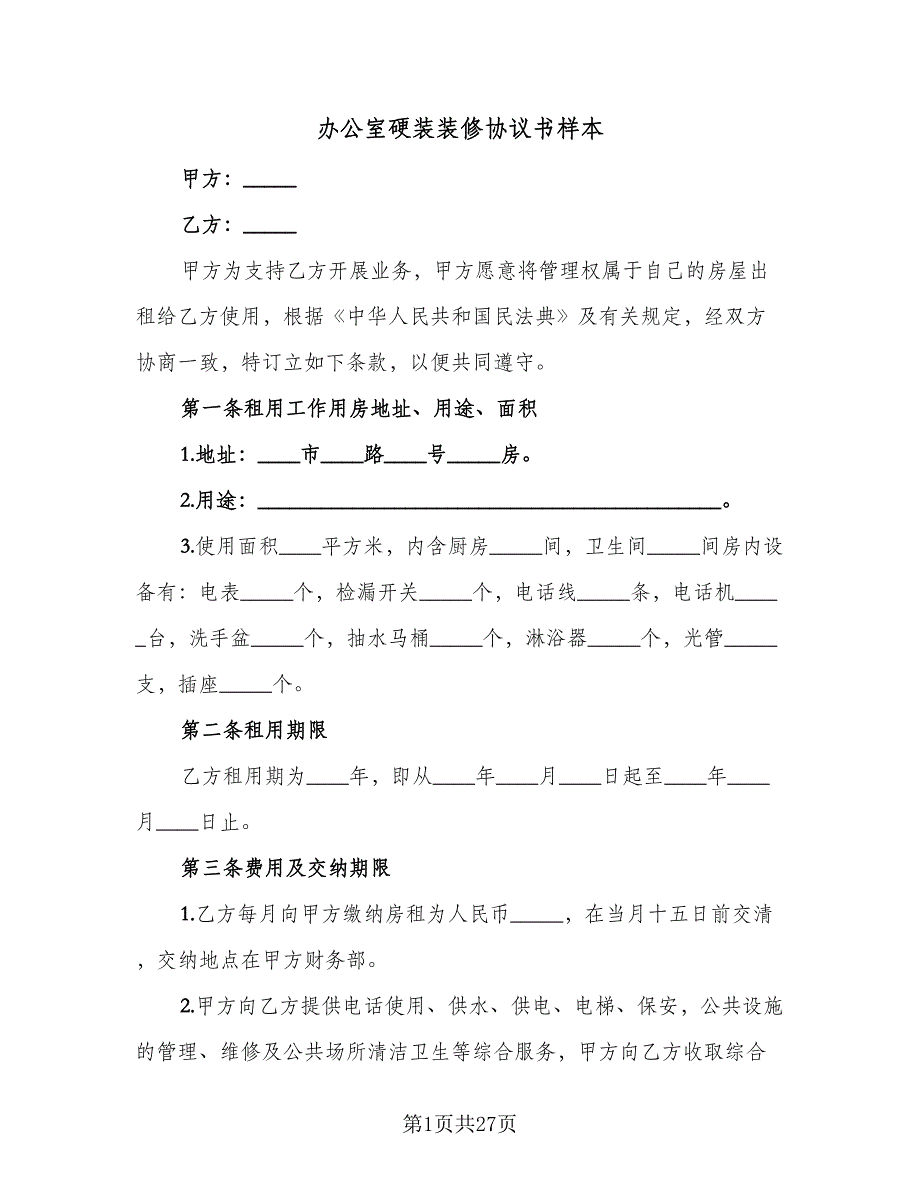 办公室硬装装修协议书样本
甲方：_____
乙方：_____
甲方为支持乙方开展业务，甲方愿意将管理权属于自己的房屋出
租给乙方使用，根据《中华人民共和国民法典》及有关规定，经双方
协商一致，特订立如下条款，以便共同遵守。
第一条租用工作用房地址、用途、面积
1.地址：____市____路____号_____房。
2.用途：____________________________________________。
3.使用面积____平方米，内含厨房_____间，卫生间_____间房内设
备有：电表_____个，检漏开关_____个，电话线_____条，电话机____
_台，洗手盆_____个，抽水马桶_____个，淋浴器_____个，光管_____
支，插座_____个。
第二条租用期限
乙方租用期为____年，即从____年____月____日起至____年____
月____日止。
第三条费用及交纳期限
1.乙方每月向甲方缴纳房租为人民币_____，在当月十五日前交清
，交纳地点在甲方财务部。
2.甲方向乙方提供电话使用、供水、供电、电梯、保安，公共设施
的管理、维修及公共场所清洁卫生等综合服务，甲方向乙方收取综合
第1页共27页